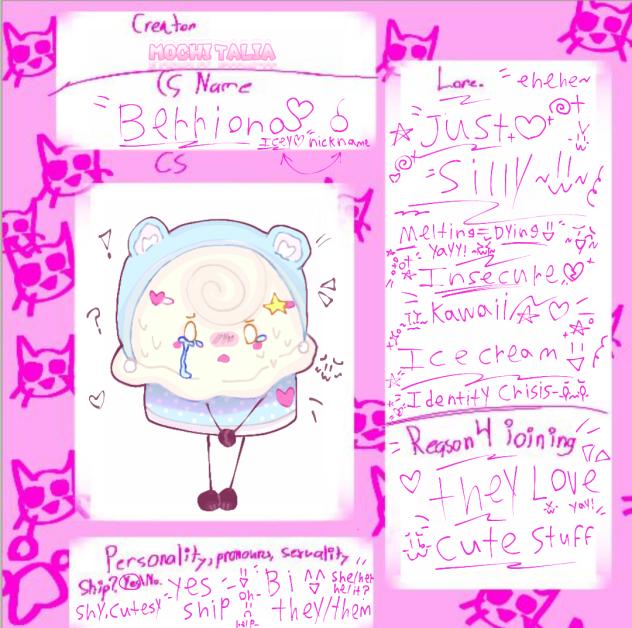 Creator
MOCHI TALIA
CS Name
Berriona
Icey nickname
CS
!
?
Personality, pronouns, sexuality
Ship? Yes/No. yes Oh- Bi she/her
he/it?
shy, cutesy ship HELP- they/them
Lore. ehehe~
Just
Silly
Melting = Dying
Yayy!
Insecure
Kawaii
Icecream
Identity Crisis-
Reason 4 joining
they Love
yay!
cute stuff